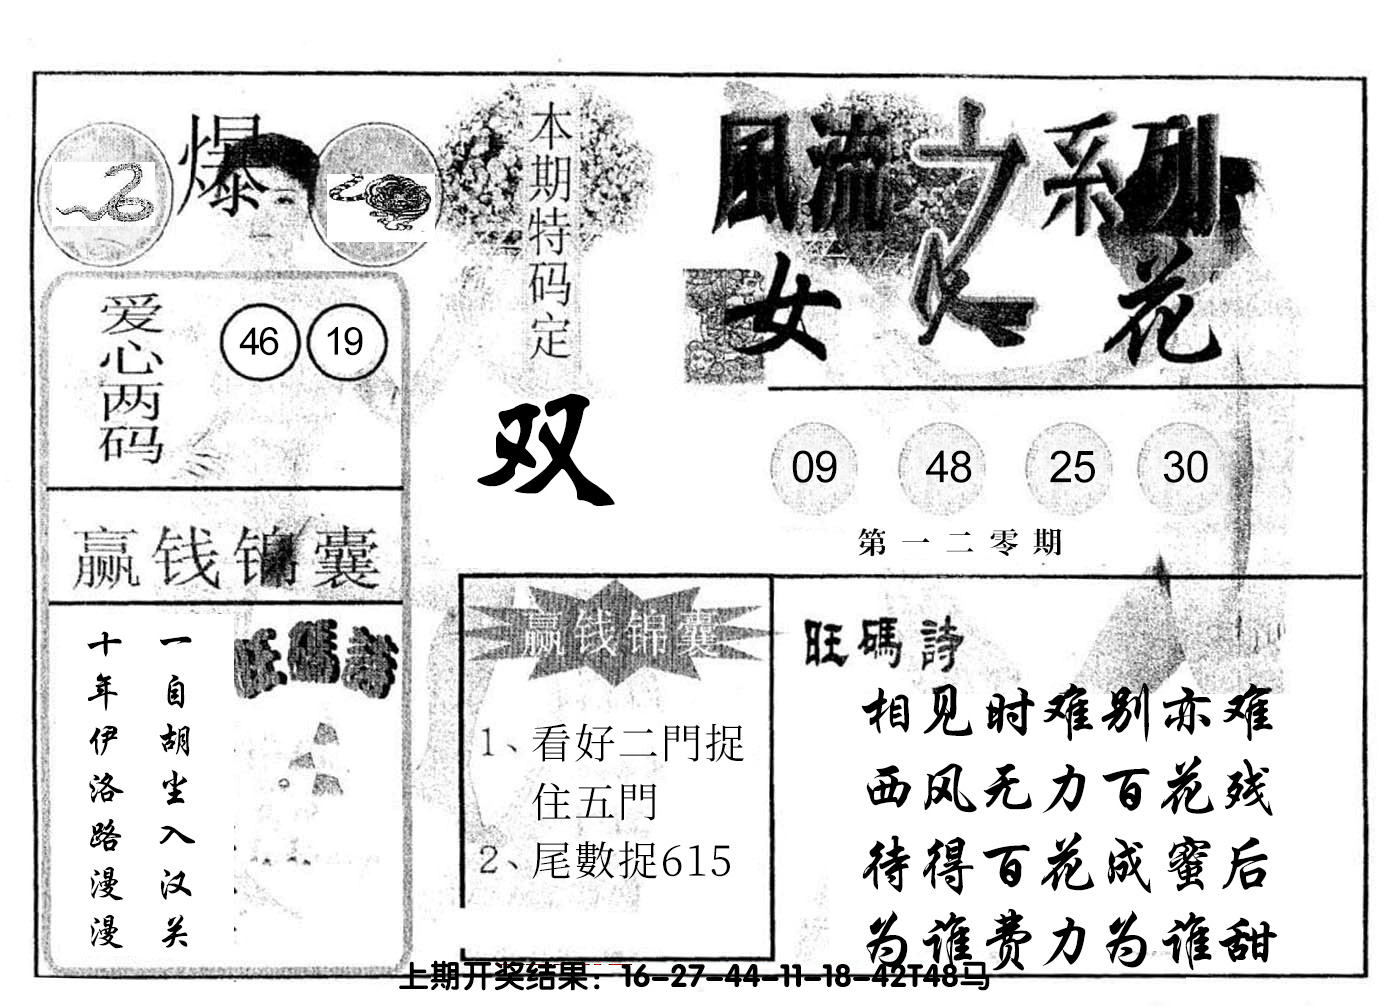 爆
本期特码定
双
風流之系列
女人花
爱心两码
46 19
09 48 25 30
第一二零期
赢钱锦囊
一自胡尘入汉关
十年伊洛路漫漫
旺碼詩
赢钱锦囊
1、看好二門捉
住五門
2、尾數捉615
旺碼詩
相见时难别亦难
西风无力百花残
待得百花成蜜后
为谁费力为谁甜
上期开奖结果：16-27-44-11-18-42T48马